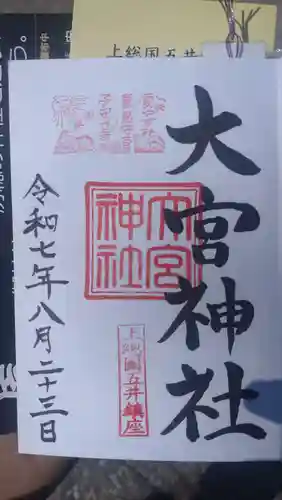 上総国五井
大宮神社
大宮
神社
上総国五井鎮座
令和七年八月二十三日